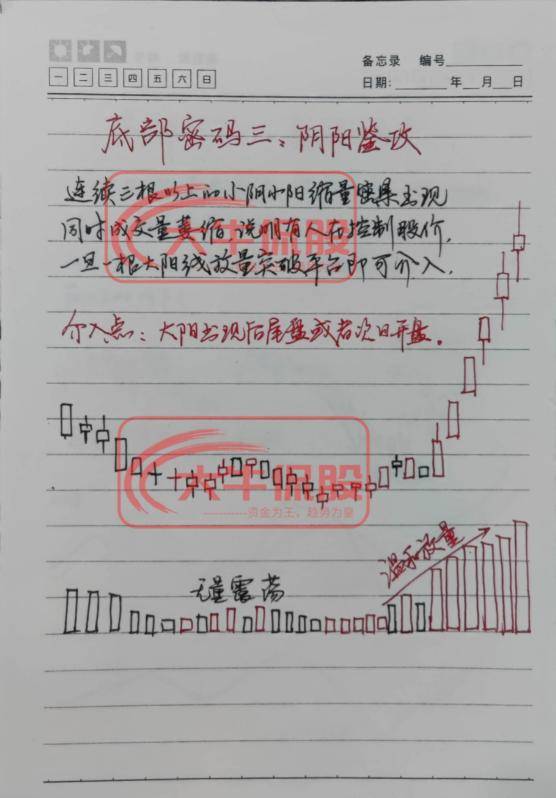 备忘录 编号
一 二 三 四 五 六 日
日期: 年 月 日
底部密码三：阴阳鉴政
连续三根以上的小阴小阳缩量密集出现
同时成交量萎缩说明有人在控制股价,
一旦一根大阳线放量突破平台即可介入.
介入点：大阳出现后尾盘或者次日开盘.
大牛保股
大牛保股
资金为王，趋势为皇
温和放量
无量震荡